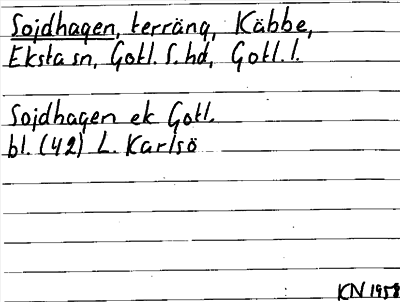 Sojdhagen, terräng, Käbbe,
Eksta sn, Gotl. S. hd, Gotl. l.
Sojdhagen ek Gotl.
bl. (42) L. Karlsö
KN 1958